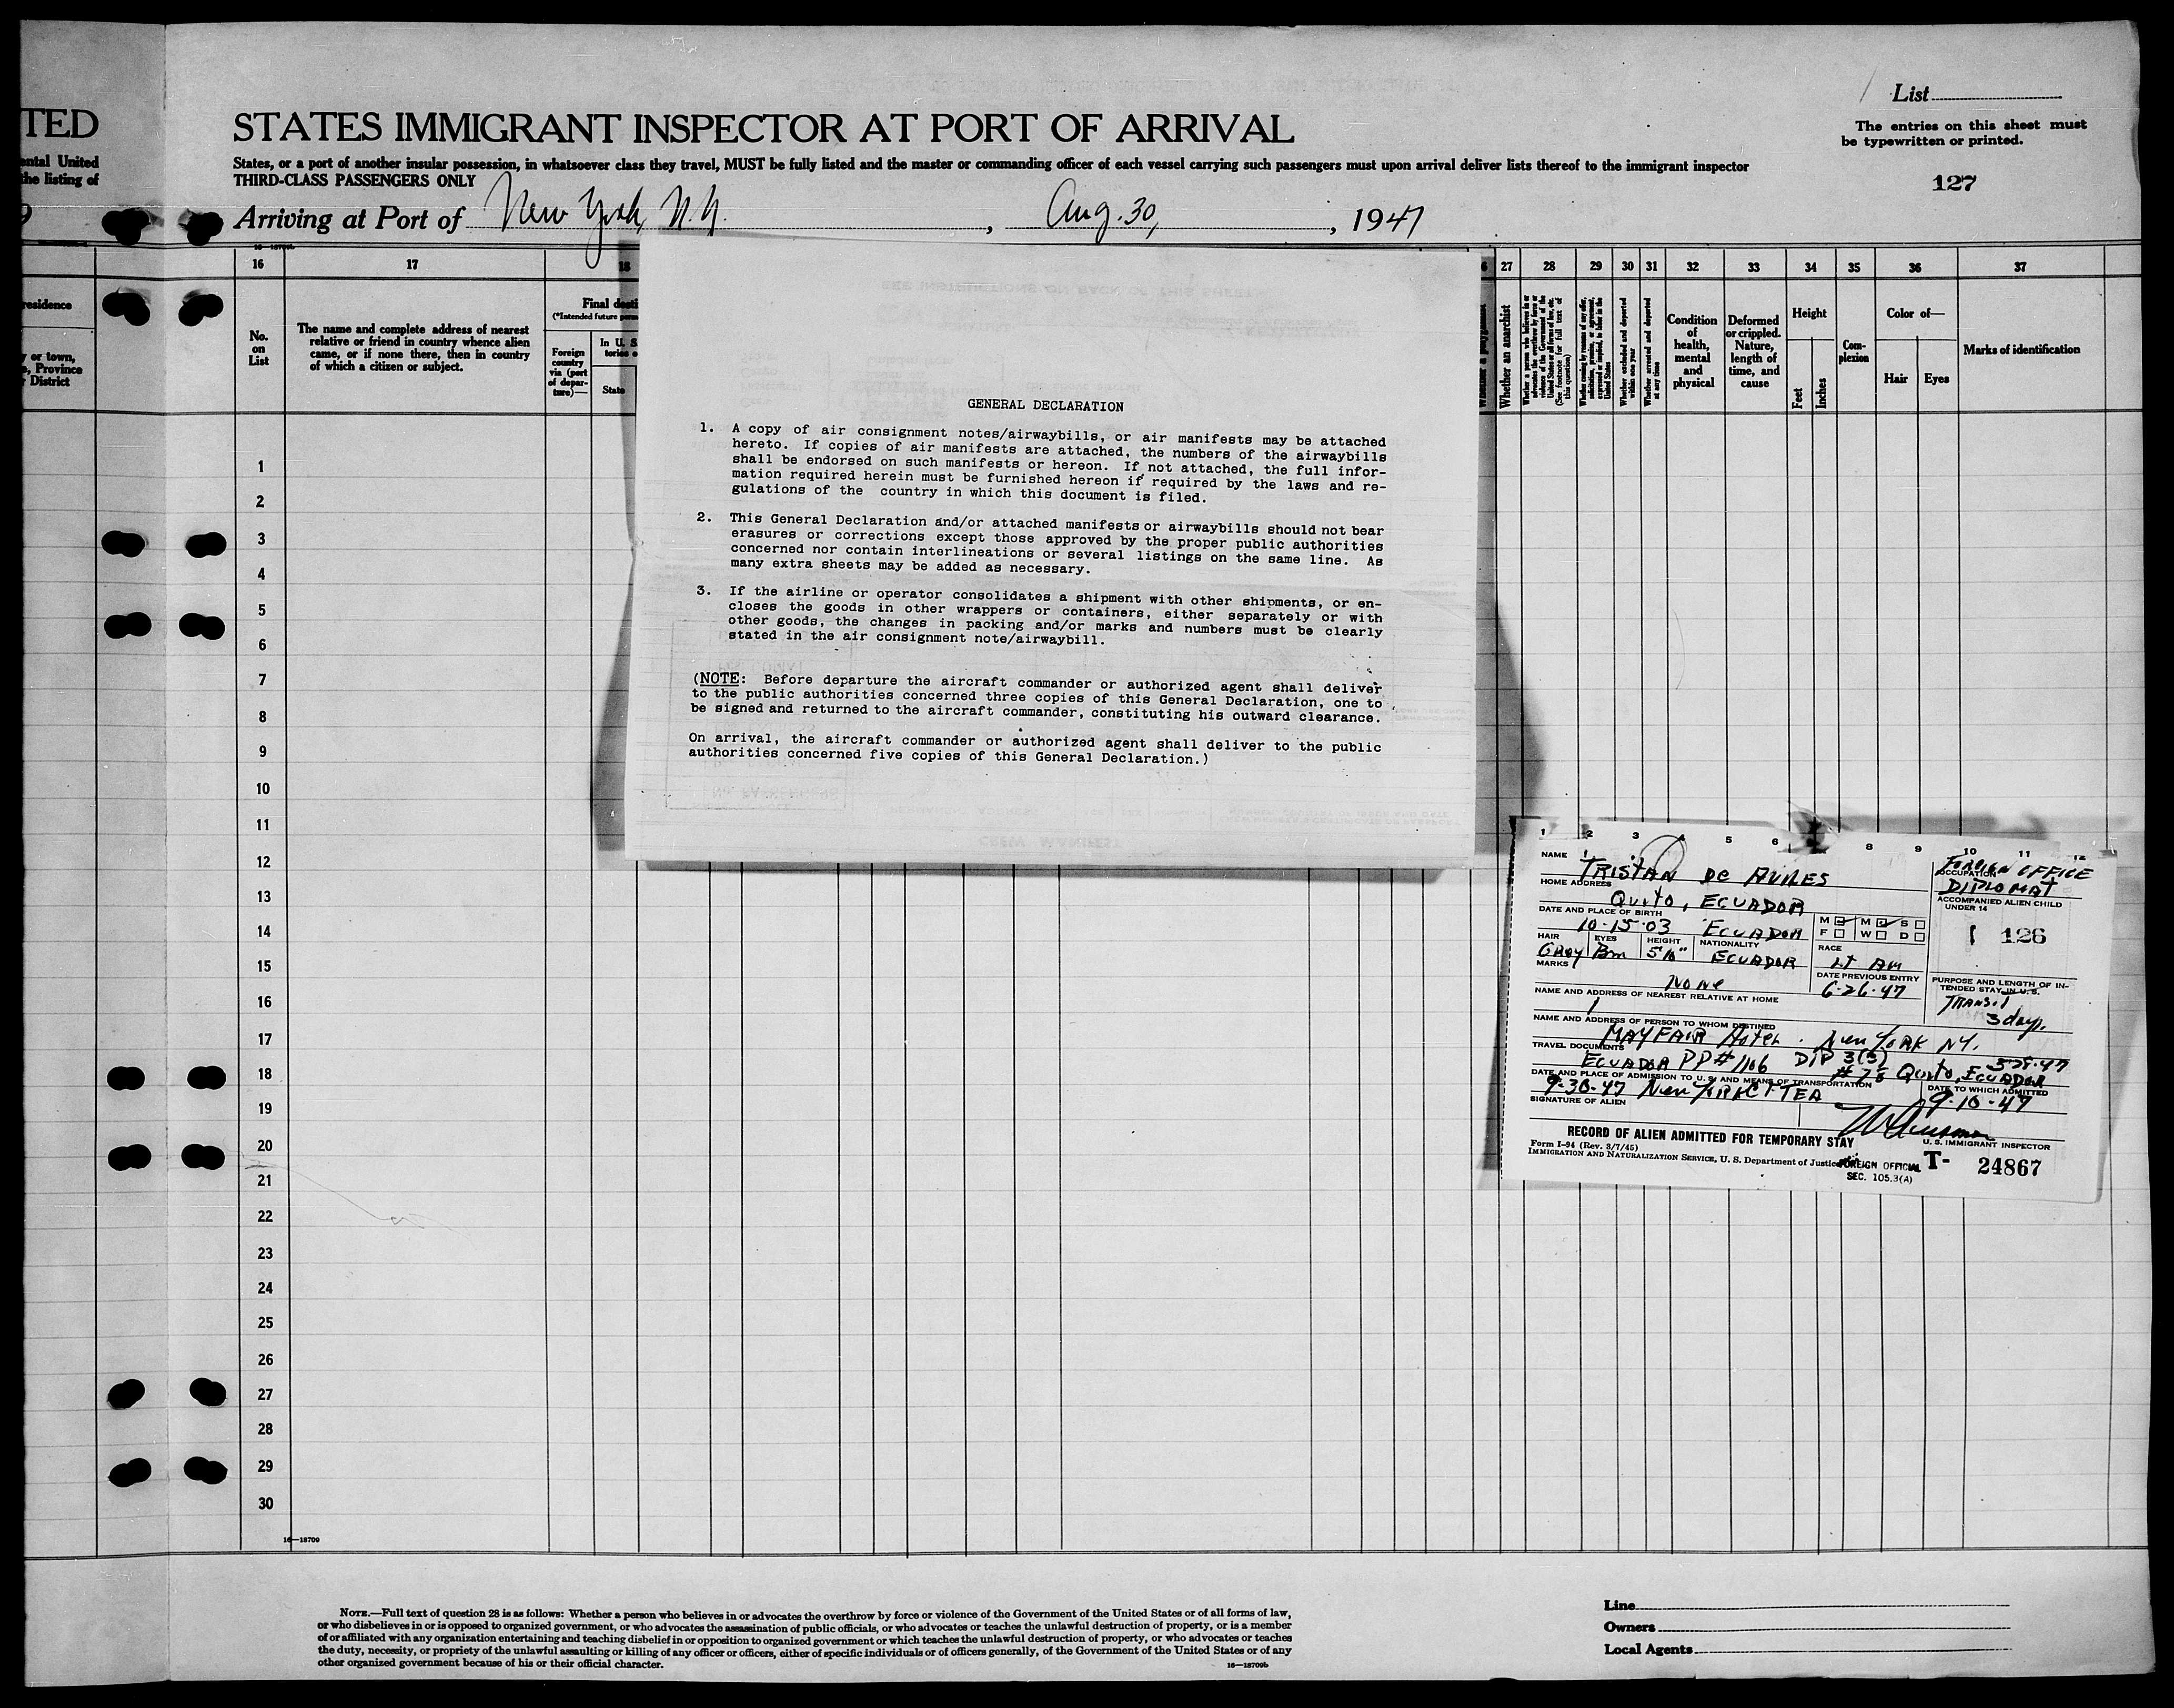 TED
STATES IMMIGRANT INSPECTOR AT PORT OF ARRIVAL
List
The entries on this sheet must
be typewritten or printed.
127
ental United
the listing of
States, or a port of another insular possession, in whatsoever class they travel, MUST be fully listed and the master or commanding officer of each vessel carrying such passengers must upon arrival deliver lists thereof to the immigrant inspector
THIRD-CLASS PASSENGERS ONLY
Arriving at Port of New York, N.Y. , Aug. 30, , 1947
16 17 18 27 28 29 30 31 32 33 34 35 36 37
residence
y or town,
Province
District
No.
on
List
The name and complete address of nearest
relative or friend in country whence alien
came, or if none there, then in country
of which a citizen or subject.
Final desti
(*Intended future perm
Foreign
country
via (port
of depar-
ture)—
In U. S.
State
Whether an anarchist
Whether a person who believes in or
advocates the overthrow by force or
violence of the Government of the
United States or all forms of law, etc.
(See footnote for full text of
this question)
Whether coming by reason of any offer,
solicitation, promise, or agreement,
expressed or implied, to labor in the
United States
Whether excluded and deported
within one year
Whether arrested and deported
at any time
Condition
of
health,
mental
and
physical
Deformed
or crippled.
Nature,
length of
time, and
cause
Height
Feet
Inches
Com-
plexion
Color of—
Hair
Eyes
Marks of identification
GENERAL DECLARATION
1. A copy of air consignment notes/airwaybills, or air manifests may be attached
hereto. If copies of air manifests are attached, the numbers of the airwaybills
shall be endorsed on such manifests or hereon. If not attached, the full infor-
mation required herein must be furnished hereon if required by the laws and re-
gulations of the country in which this document is filed.
2. This General Declaration and/or attached manifests or airwaybills should not bear
erasures or corrections except those approved by the proper public authorities
concerned nor contain interlineations or several listings on the same line. As
many extra sheets may be added as necessary.
3. If the airline or operator consolidates a shipment with other shipments, or en-
closes the goods in other wrappers or containers, either separately or with
other goods, the changes in packing and/or marks and numbers must be clearly
stated in the air consignment note/airwaybill.
(NOTE: Before departure the aircraft commander or authorized agent shall deliver
to the public authorities concerned three copies of this General Declaration, one to
be signed and returned to the aircraft commander, constituting his outward clearance.
On arrival, the aircraft commander or authorized agent shall deliver to the public
authorities concerned five copies of this General Declaration.)
1
2
3
4
5
6
7
8
9
10
11
12
13
14
15
16
17
18
19
20
21
22
23
24
25
26
27
28
29
30
16—18709
1 2 3 4 5 6 8 9 10 11 12
NAME TRISTAN DE AVILES
FOREIGN OFFICE
OCCUPATION
DIPLOMAT
HOME ADDRESS Quito, ECUADOR
ACCOMPANIED ALIEN CHILD
UNDER 14
DATE AND PLACE OF BIRTH
10-15-03 ECUADOR
M M S
F W D
126
HAIR EYES HEIGHT NATIONALITY RACE
Gray Brn 5'10" ECUADOR Lt Am
MARKS None
DATE PREVIOUS ENTRY
6-26-47
PURPOSE AND LENGTH OF IN-
TENDED STAY IN U. S.
TRANSIT
3 days
NAME AND ADDRESS OF NEAREST RELATIVE AT HOME
NAME AND ADDRESS OF PERSON TO WHOM DESTINED
MAYFAIR Hotel. New YORK NY.
TRAVEL DOCUMENTS
ECUADOR PP# 1106 DIP 3(3)
Quito, ECUADOR
DATE AND PLACE OF ADMISSION TO U. S. AND MEANS OF TRANSPORTATION
9-30-47 New YORK
DATE TO WHICH ADMITTED
9-10-47
SIGNATURE OF ALIEN
RECORD OF ALIEN ADMITTED FOR TEMPORARY STAY
U. S. IMMIGRANT INSPECTOR
Form I-94 (Rev. 3/7/45)
IMMIGRATION AND NATURALIZATION SERVICE, U. S. Department of Justice
FOREIGN OFFICIAL
SEC. 105.3(A)
T- 24867
NOTE.—Full text of question 28 is as follows: Whether a person who believes in or advocates the overthrow by force or violence of the Government of the United States or of all forms of law,
or who disbelieves in or is opposed to organized government, or who advocates the assassination of public officials, or who advocates or teaches the unlawful destruction of property, or is a member
of or affiliated with any organization entertaining and teaching disbelief in or opposition to organized government or which teaches the unlawful destruction of property, or who advocates or teaches
the duty, necessity, or propriety of the unlawful assaulting or killing of any officer or officers, either of specific individuals or of officers generally, of the Government of the United States or of any
other organized government because of his or their official character.
16—18709b
Line
Owners
Local Agents